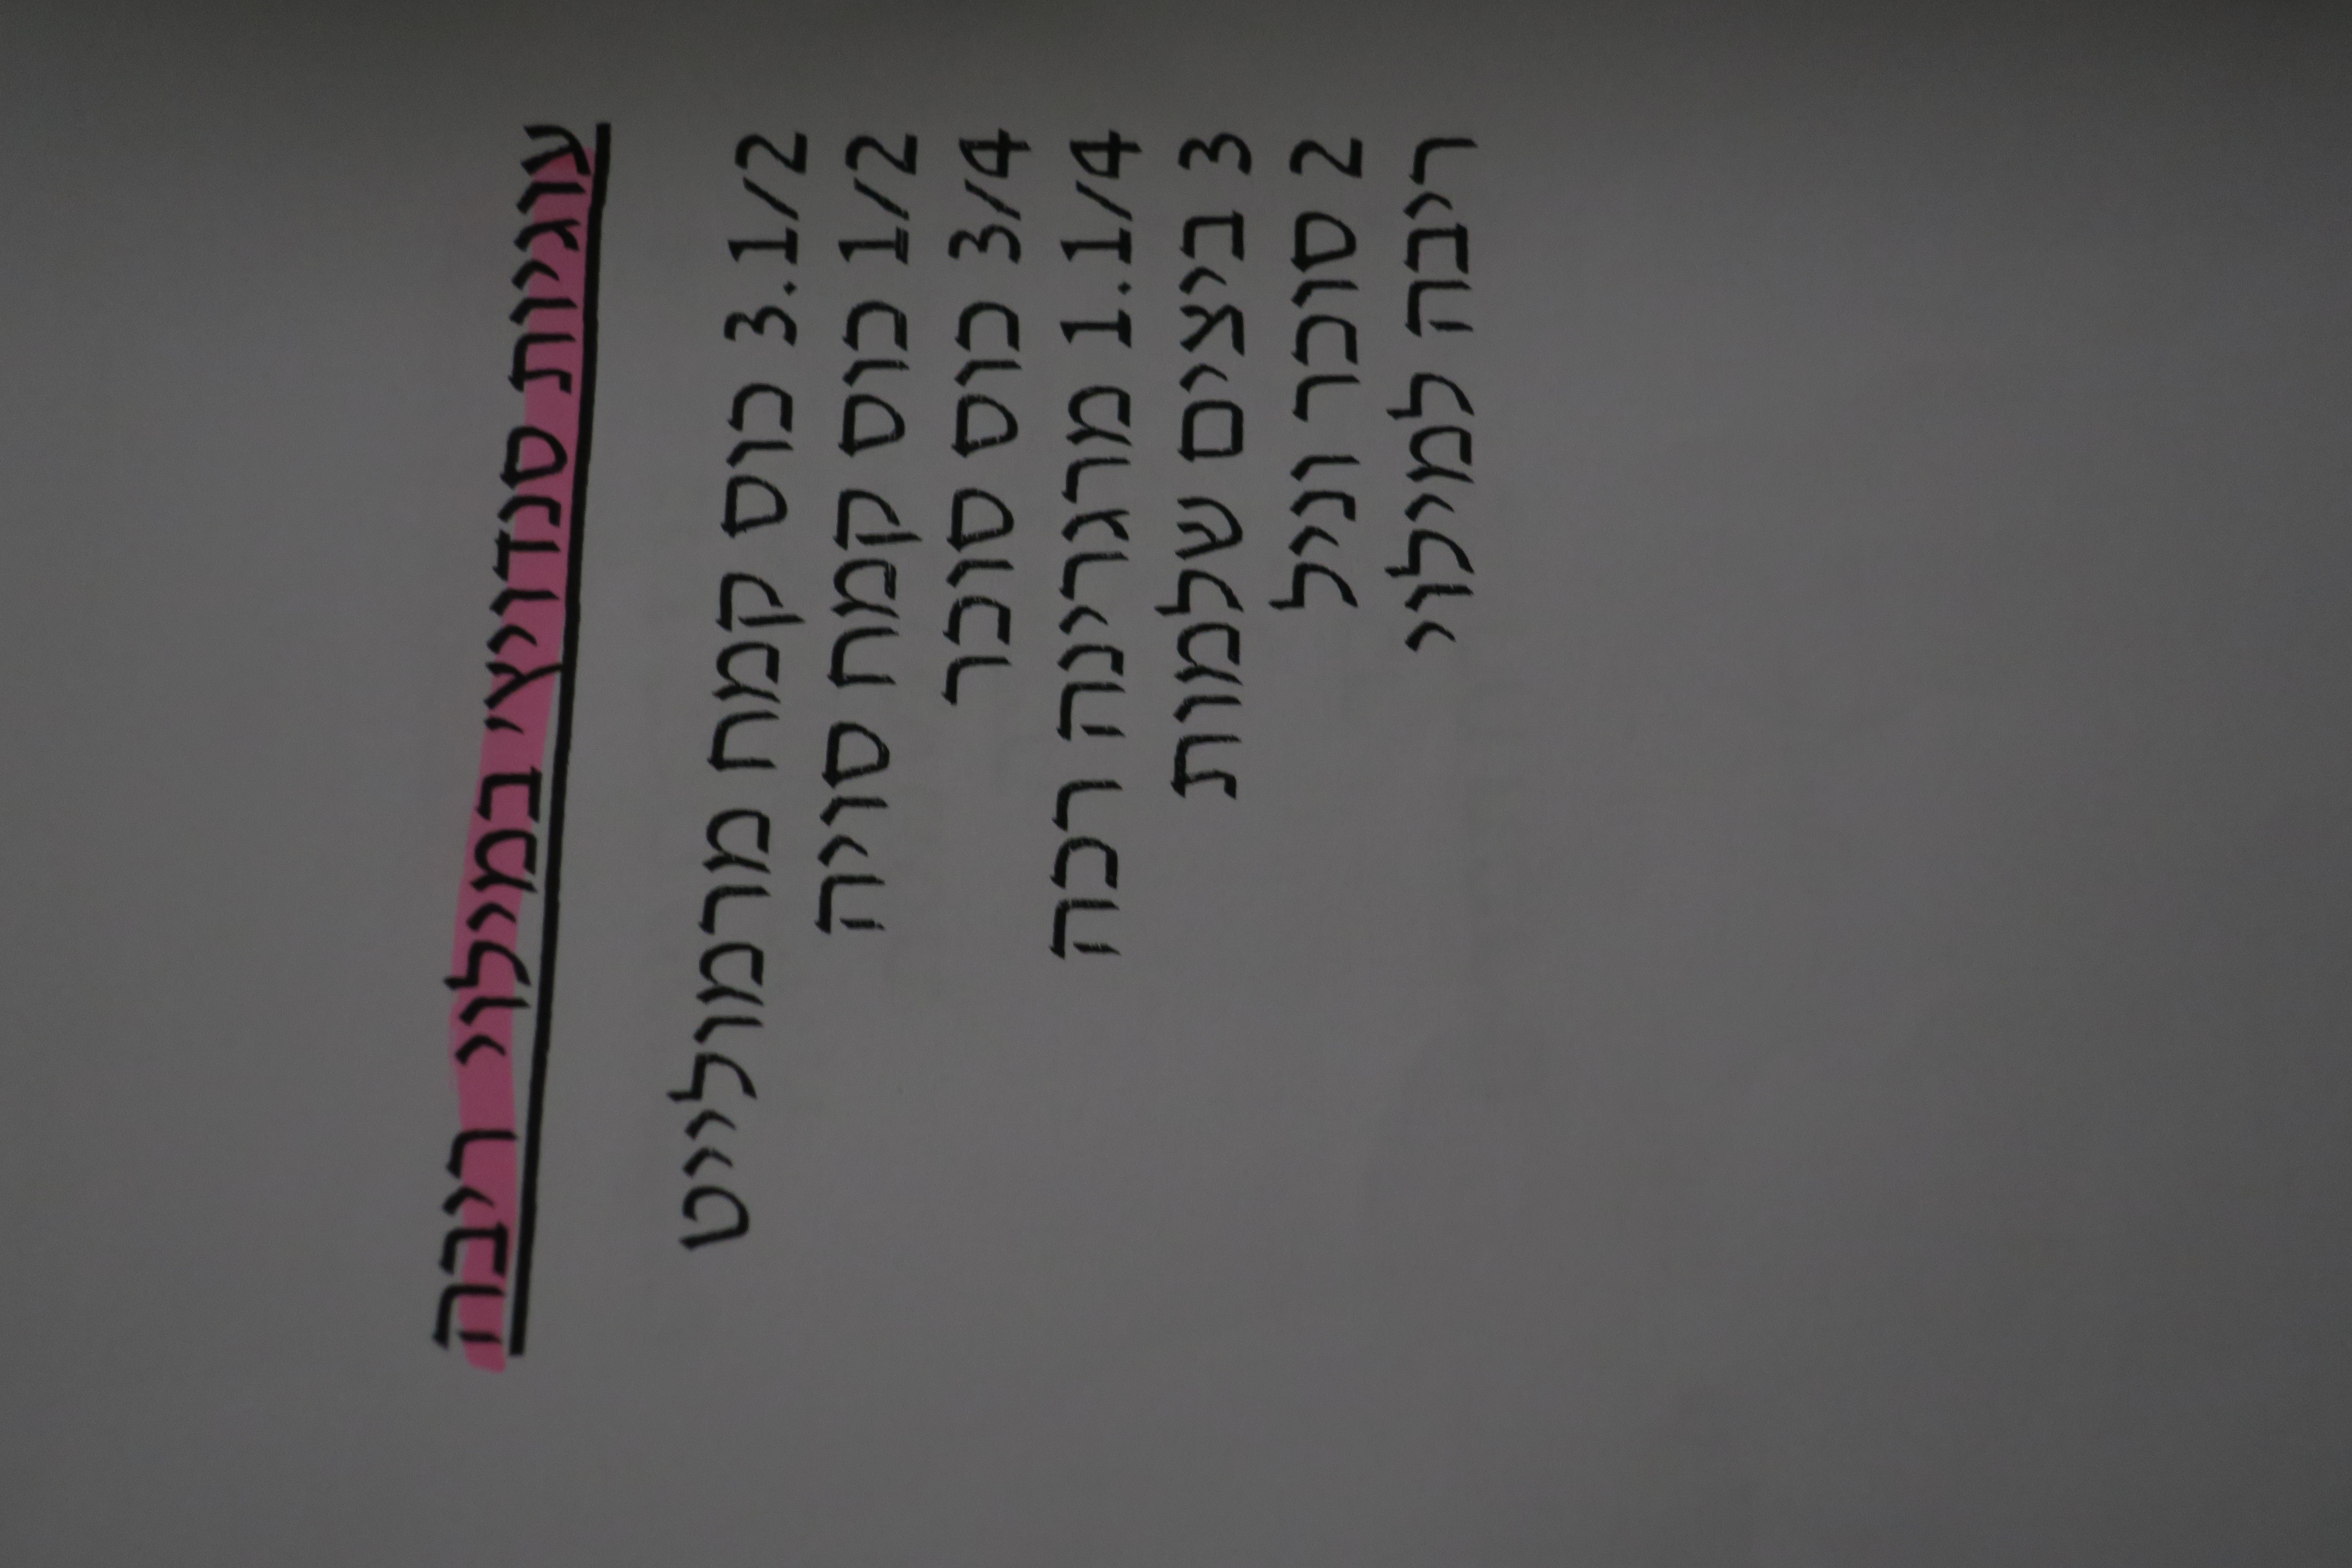 עוגיות סנדויצ'י במילוי ריבה
3.1/2 כוס קמח מרמולייט
1/2 כוס קמח סויה
3/4 כוס סוכר
1.1/4 מרגרינה רכה
3 ביצים שלמות
2 סוכר וניל
ריבה למילוי